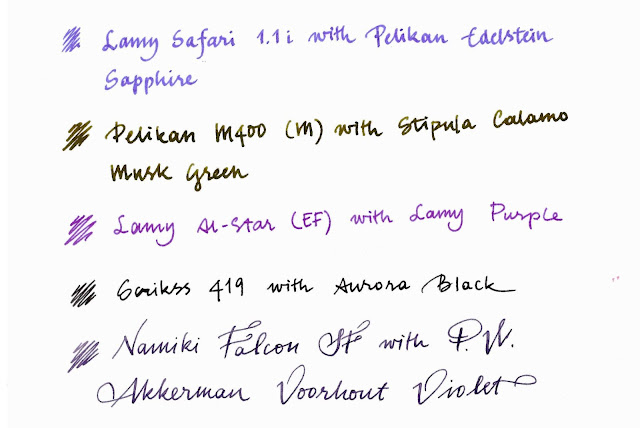 Lamy Safari 1.1 i with Pelikan Edelstein
Sapphire
Pelikan M400 (M) with Stipula Calamo
Musk Green
Lamy Al-Star (EF) with Lamy Purple
Scrikss 419 with Aurora Black
Namiki Falcon SF with P.W.
Akkerman Voorhout Violet